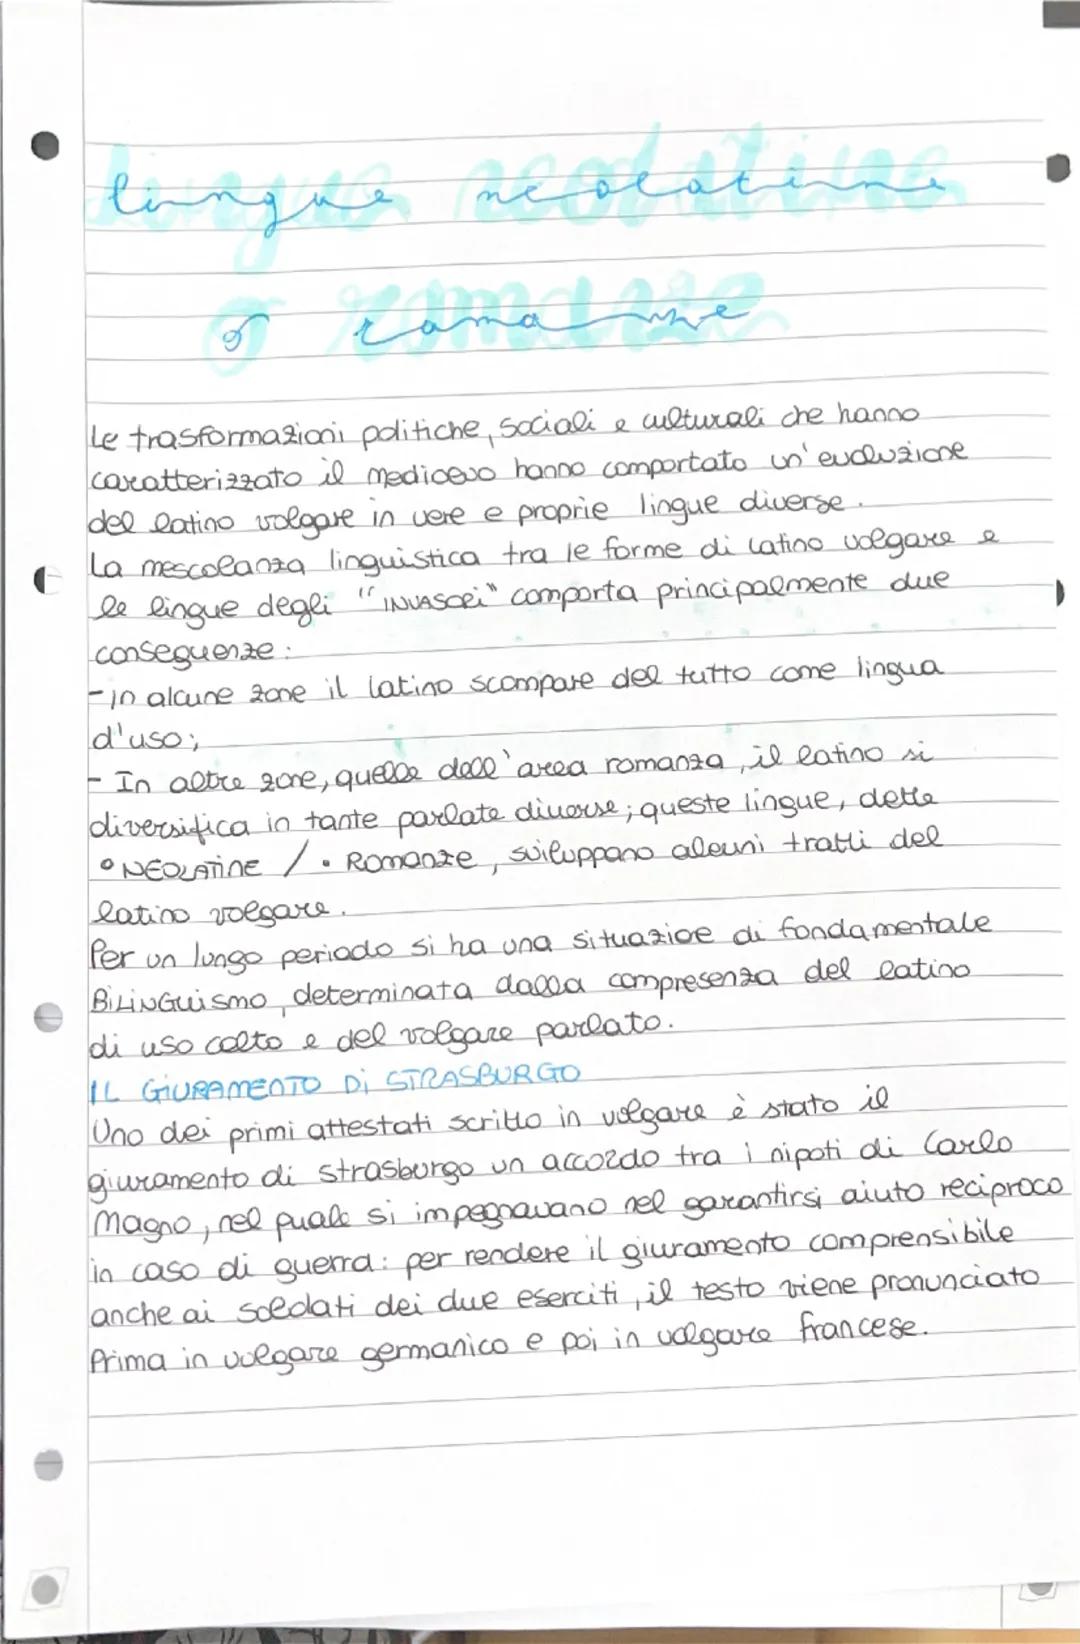 lingue neolatine
o romanze
Le trasformazioni politiche, sociali e culturali che hanno
caratterizzato il medioevo hanno comportato un'evoluzione
del latino volgare in vere e proprie lingue diverse.
La mescolanza linguistica tra le forme di latino volgare e
le lingue degli "INVASORI" comporta principalmente due
conseguenze:
-in alcune zone il latino scompare del tutto come lingua
d'uso;
- In altre zone, quelle dell'area romanza, il latino si
diversifica in tante parlate diverse; queste lingue, dette
• NEOLATINE / • Romanze, sviluppano alcuni tratti del
latino volgare.
Per un lungo periodo si ha una situazioe di fondamentale
BiLiNGuismo, determinata dalla compresenza del latino
di uso colto e del volgare parlato.
IL GiURAMENTO Di STRASBURGO
Uno dei primi attestati scritto in volgare è stato il
giuramento di strasburgo un accordo tra i nipoti di Carlo
Magno, nel quale si impegnavano nel garantirsi aiuto reciproco
in caso di guerra: per rendere il giuramento comprensibile
anche ai soldati dei due eserciti, il testo viene pronunciato
Prima in volgare germanico e poi in volgare francese.